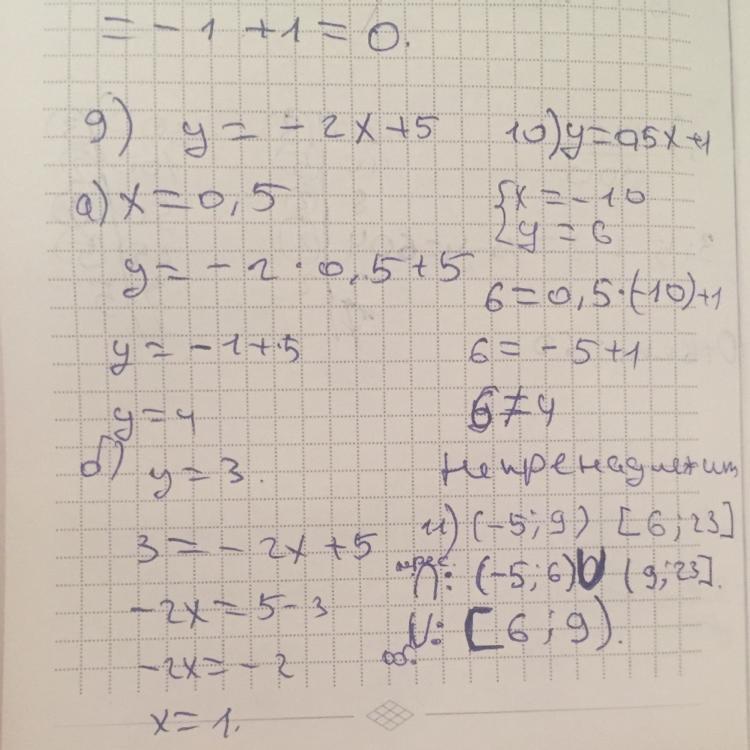 = - 1 + 1 = 0.
9) y = - 2x + 5
а) x = 0,5
y = - 2 · 0,5 + 5
y = - 1 + 5
y = 4
б) y = 3.
3 = - 2x + 5
-2x = 5 - 3
-2x = - 2
x = 1.
10) y = 0,5x + 1
{x = - 10
{y = 6
6 = 0,5 · (-10) + 1
6 = - 5 + 1
6 ≠ 4
Не пренадлежит
11) (-5; 9) [6; 23]
перес. ∩: (-5; 6) ∪ (9; 23].
об. ∪: [6; 9).